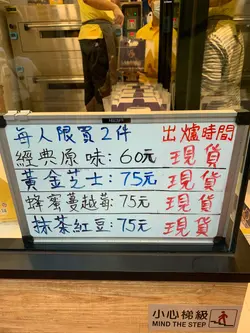 每人限買2件 出爐時間
經典原味:60元 現貨
黃金芝士:75元 現貨
蜂蜜蔓越莓:75元 現貨
抹茶紅豆:75元 現貨
小心梯級
MIND THE STEP